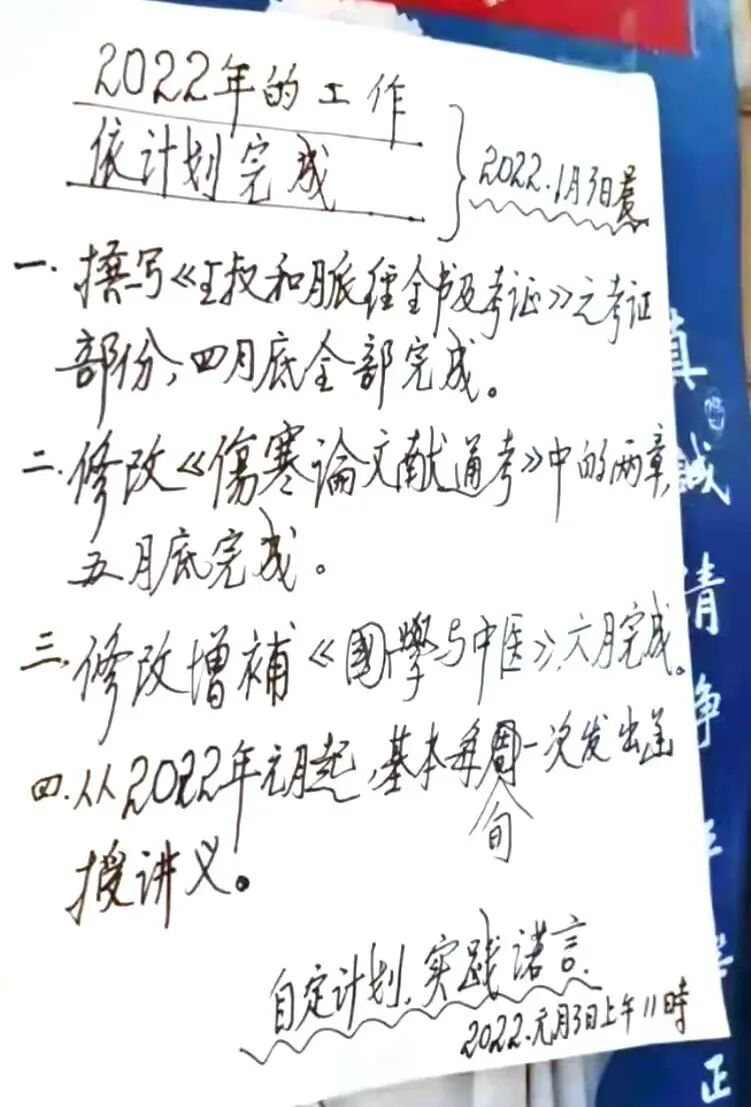 2022年的工作
依计划完成
2022.1月3日晨
一.撰写《王叔和脈经全书及考证》之考证
部份,四月底全部完成。
二.修改《傷寒論文献通考》中的两章,
五月底完成。
三.修改增補《國學与中医》,六月完成。
四.从2022年元月起,基本每周一次发出函
旬
授讲义。
自定计划,实践诺言.
2022.元月3日上午11時
真
誠
清
净
平
正